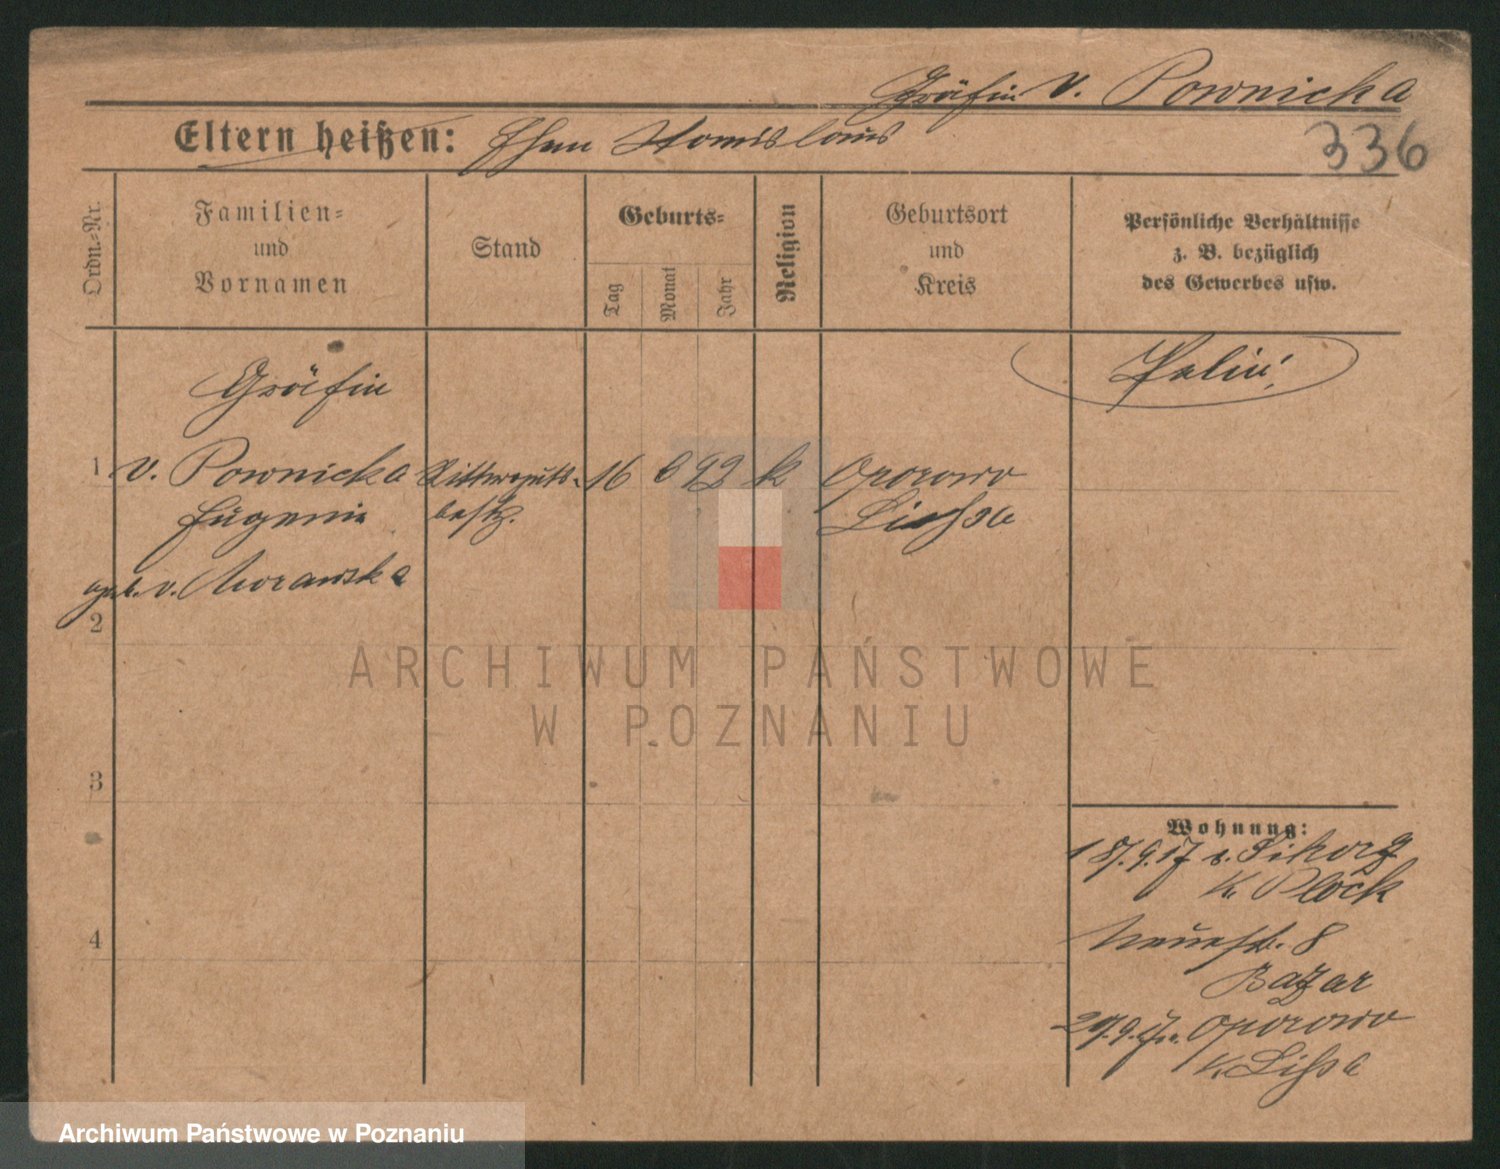 Gräfin v. Pownicka
336
Eltern heißen: Ehem Stanislaus
Ordn.-Nr.
Familien-
und
Vornamen
Stand
Geburts-
Tag
Monat
Jahr
Religion
Geburtsort
und
Kreis
Persönliche Verhältnisse
z. B. bezüglich
des Gewerbes usw.
Gräfin
1 v. Pownicka Ritterguts- 16 6 92 k Oporowo
Eugenie besitz. Lissa
geb. v. Morawska
2
3
4
Wohnung:
v. Sikorz
K. Plock
Neuestr. 8
Bazar
Oporowo
K. Lissa
ARCHIWUM PAŃSTWOWE
W POZNANIU
Archiwum Państwowe w Poznaniu